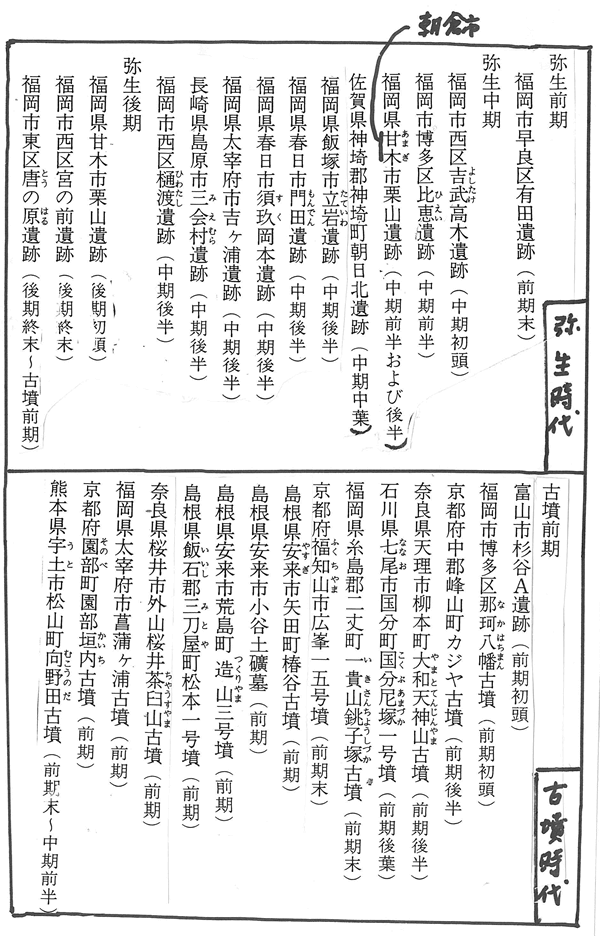 朝倉市
弥生時代
弥生前期
福岡市早良区有田遺跡（前期末）
弥生中期
よしたけ
福岡市西区吉武高木遺跡（中期初頭）
ひえい
福岡市博多区比恵遺跡（中期前半）
あまぎ
福岡県甘木市栗山遺跡（中期前半および後半）
佐賀県神埼郡神埼町朝日北遺跡（中期中葉）
たていわ
福岡県飯塚市立岩遺跡（中期後半）
もんでん
福岡県春日市門田遺跡（中期後半）
すく
福岡県春日市須玖岡本遺跡（中期後半）
福岡県太宰府市吉ヶ浦遺跡（中期後半）
みえむら
長崎県島原市三会村遺跡（中期後半）
ひわたし
福岡市西区樋渡遺跡（中期後半）
弥生後期
福岡県甘木市栗山遺跡（後期初頭）
福岡市西区宮の前遺跡（後期終末）
とう はる
福岡市東区唐の原遺跡（後期終末～古墳前期）
古墳時代
古墳前期
富山市杉谷A遺跡（前期初頭）
なかはちまん
福岡市博多区那珂八幡古墳（前期初頭）
京都府中郡峰山町カジヤ古墳（前期後半）
やまとてんじんやま
奈良県天理市柳本町大和天神山古墳（前期後半）
ななお こくぶあまづか
石川県七尾市国分町国分尼塚一号墳（前期後葉）
いきさんちょうしづか
福岡県糸島郡二丈町一貴山銚子塚古墳（前期末）
ふくちやま
京都府福知山市広峯一五号墳（前期末）
やすぎ
島根県安来市矢田町椿谷古墳（前期）
島根県安来市小谷土礦墓（前期）
つくりやま
島根県安来市荒島町造山三号墳（前期）
いいし みとや
島根県飯石郡三刀屋町松本一号墳（前期）
ちゃうすやま
奈良県桜井市外山桜井茶臼山古墳（前期）
福岡県太宰府市菖蒲ヶ浦古墳（前期）
そのべ かいち
京都府園部町園部垣内古墳（前期）
うと むこうのだ
熊本県宇土市松山町向野田古墳（前期末～中期前半）